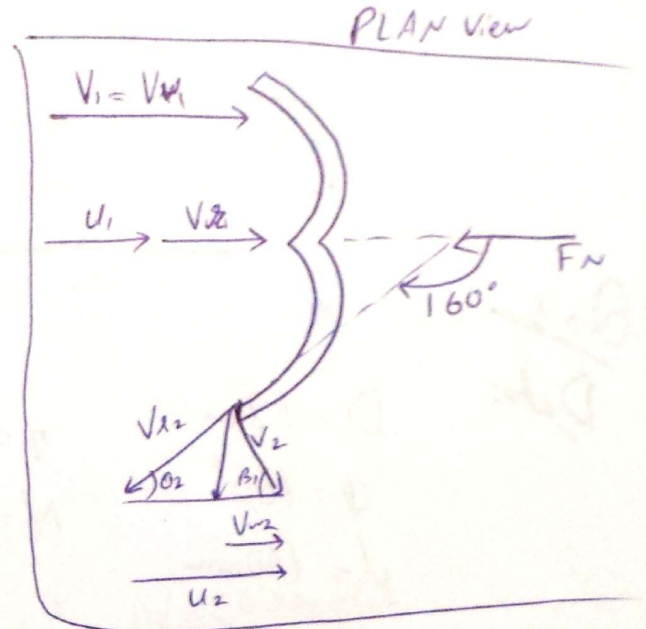 PLAN View
V₁ = Vw₁
u₁ Vr₁
FN
160°
Vr₂ V₂
θ₂ β₁
Vw₂
u₂